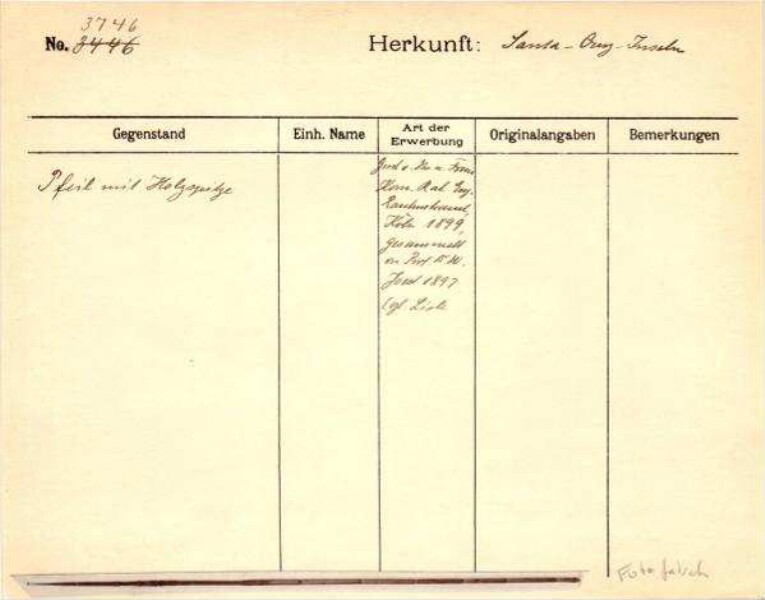 3746
No. 3446 Herkunft: Santa-Cruz-Inseln
Gegenstand Einh. Name Art der Erwerbung Originalangaben Bemerkungen
Pfeil mit Holzspitze
Kom. Rat Eug.
Köln 1899,
gesammelt
Prof. Dr. W.
Joest 1897
Cgf. Liste
Foto falsch